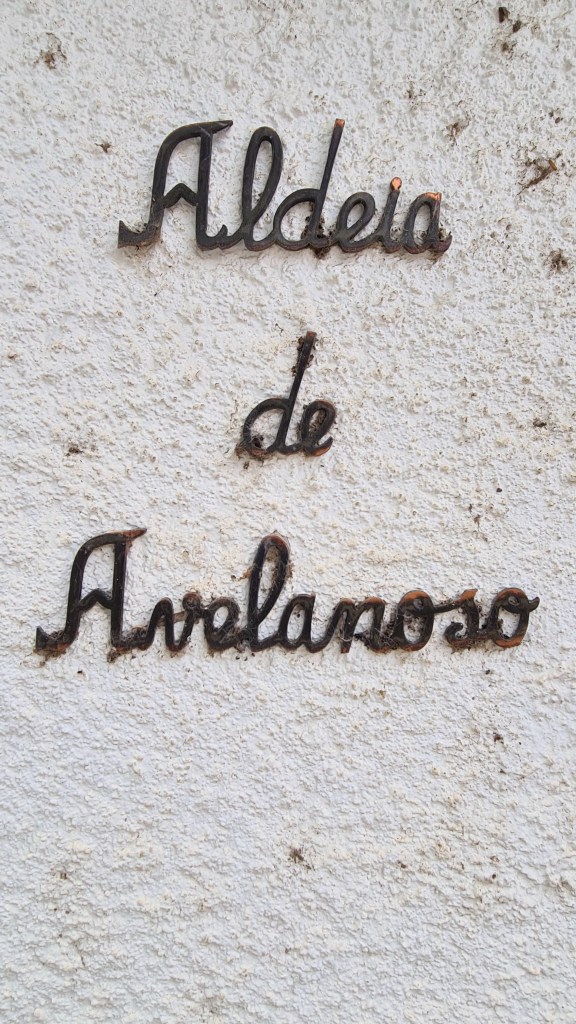 Aldeia
de
Avelanoso